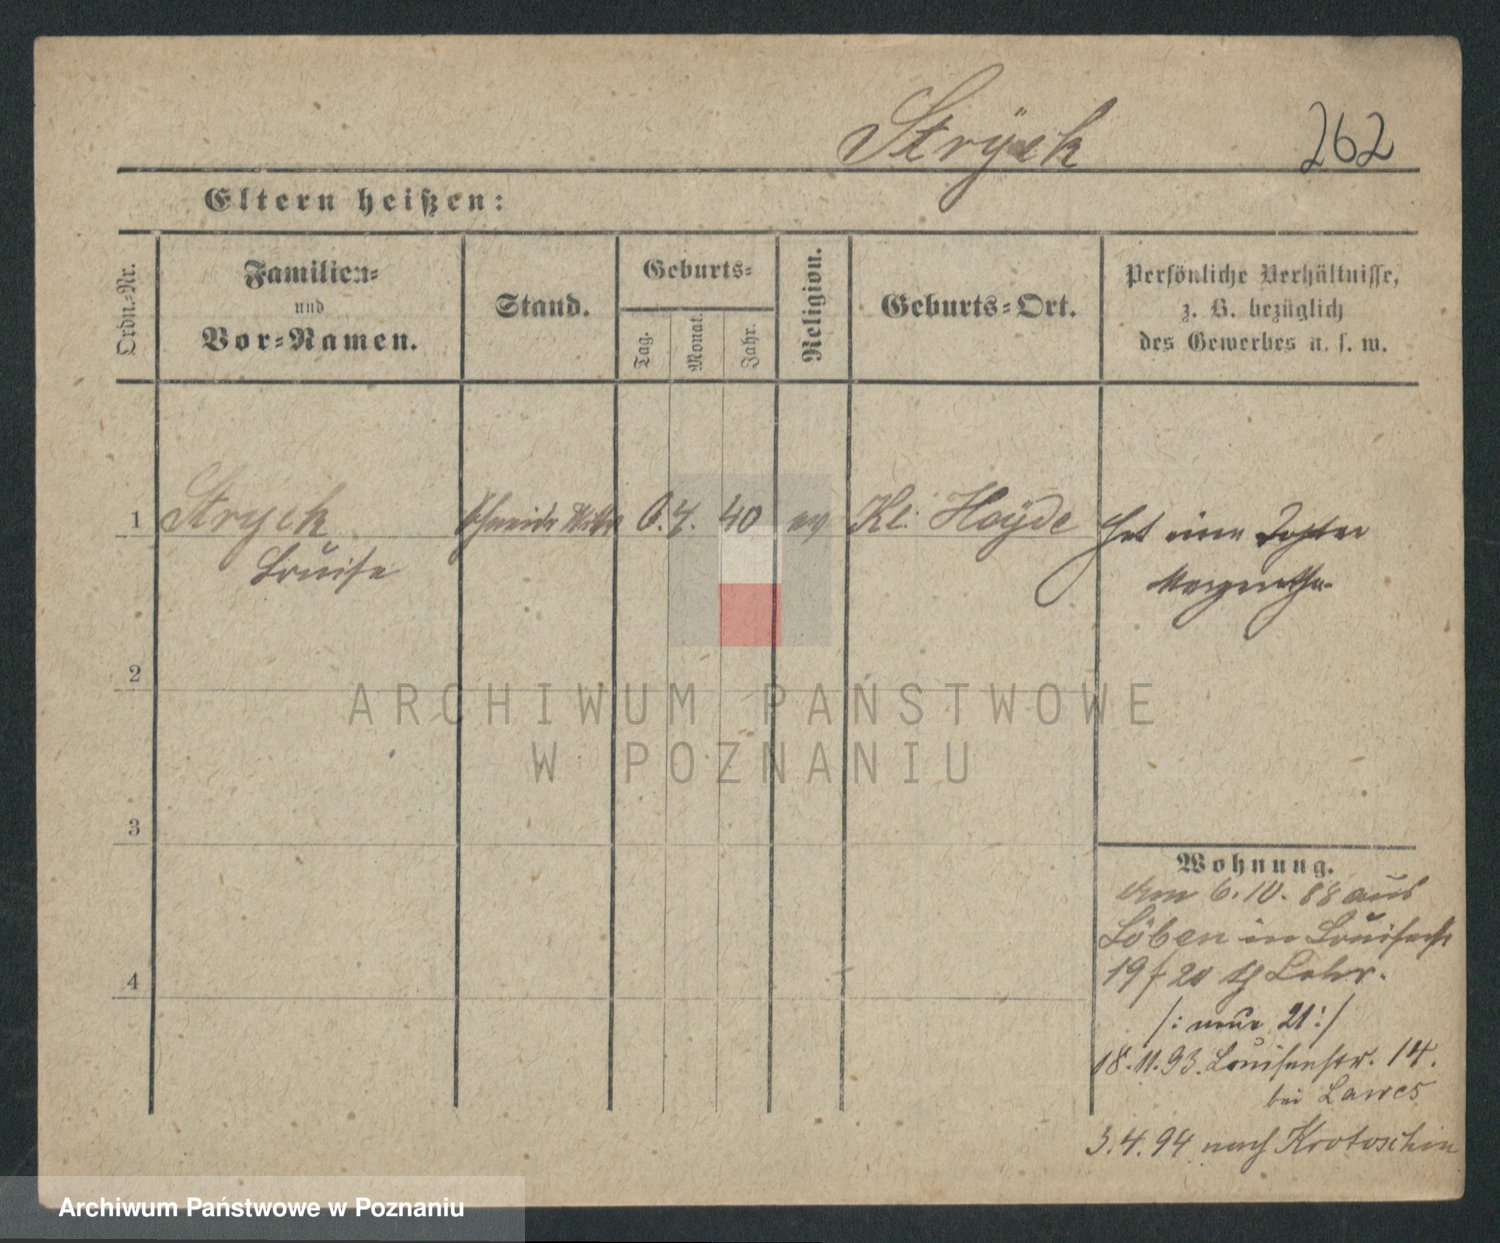 Strÿck
262
Eltern heißen:
Ordn.-Nr.
Familien-
und
Vor-Namen.
Stand.
Geburts-
Tag.
Monat.
Jahr.
Religion.
Geburts-Ort.
Persönliche Verhältnisse,
z. B. bezüglich
des Gewerbes u. s. w.
1 Stryck 6. 4. 40 ev Kl. Hoÿde hat eine Tochter
Louise Margarethe
2
ARCHIWUM PAŃSTWOWE
W POZNANIU
3
Wohnung.
Am 6.10.88 aus
Löben in Louisenstr
4
19/20 Lehr.
/: neue 21 :/
18.11.93. Louisenstr. 14.
bei Lawes
3.4.94 nach Krotoschin
Archiwum Państwowe w Poznaniu